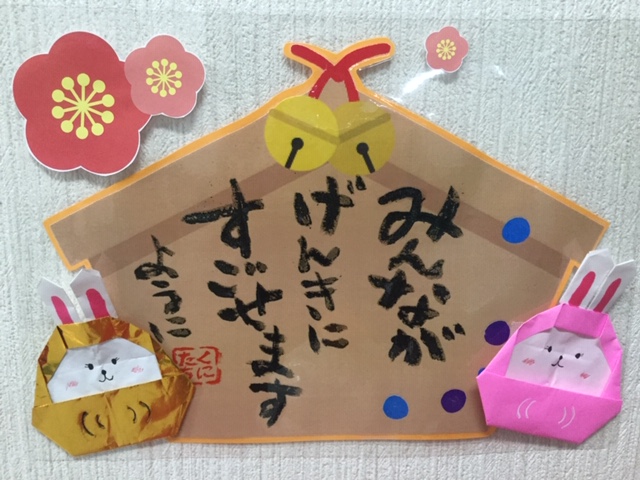 みんなが
げんきに
すごせます
ように
くに
たち